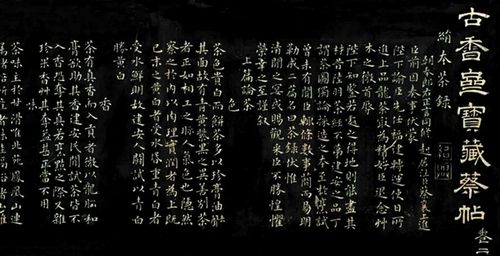 古香齋寶藏蔡帖 卷二
絹本茶錄
朝奉郎右正言同修起居注臣蔡襄上進
臣前因奏事伏蒙
陛下諭臣先任福建轉運使日所
進上品龍茶最為精好臣退念艸
木之微首辱
陛下知鑒若處之得地則能盡其
材昔陸羽茶經不第建安之品丁
謂茶圖獨論採造之本至於烹試
曾未有聞臣輒條數事簡而易明
勒成二篇名曰茶錄伏惟
清閒之宴或賜觀采臣不勝惶懼
榮幸之至謹敘
上篇論茶
色
茶色貴白而餅茶多以珍膏油
其面故有青黃紫黑之異善別茶
者正如相工之瞟人氣色也隱然
察之於內以肉理實潤者為上既
已末之黃白者受水昏重青白者
受水鮮明故建安人鬬試以青白
勝黃白
香
茶有真香而入貢者微以龍腦和
膏欲助其香建安民間試茶皆不
入香恐奪其真若烹點之際又雜
珍果香草其奪益甚正當不用
味
茶味主於甘滑惟北苑鳳凰山連